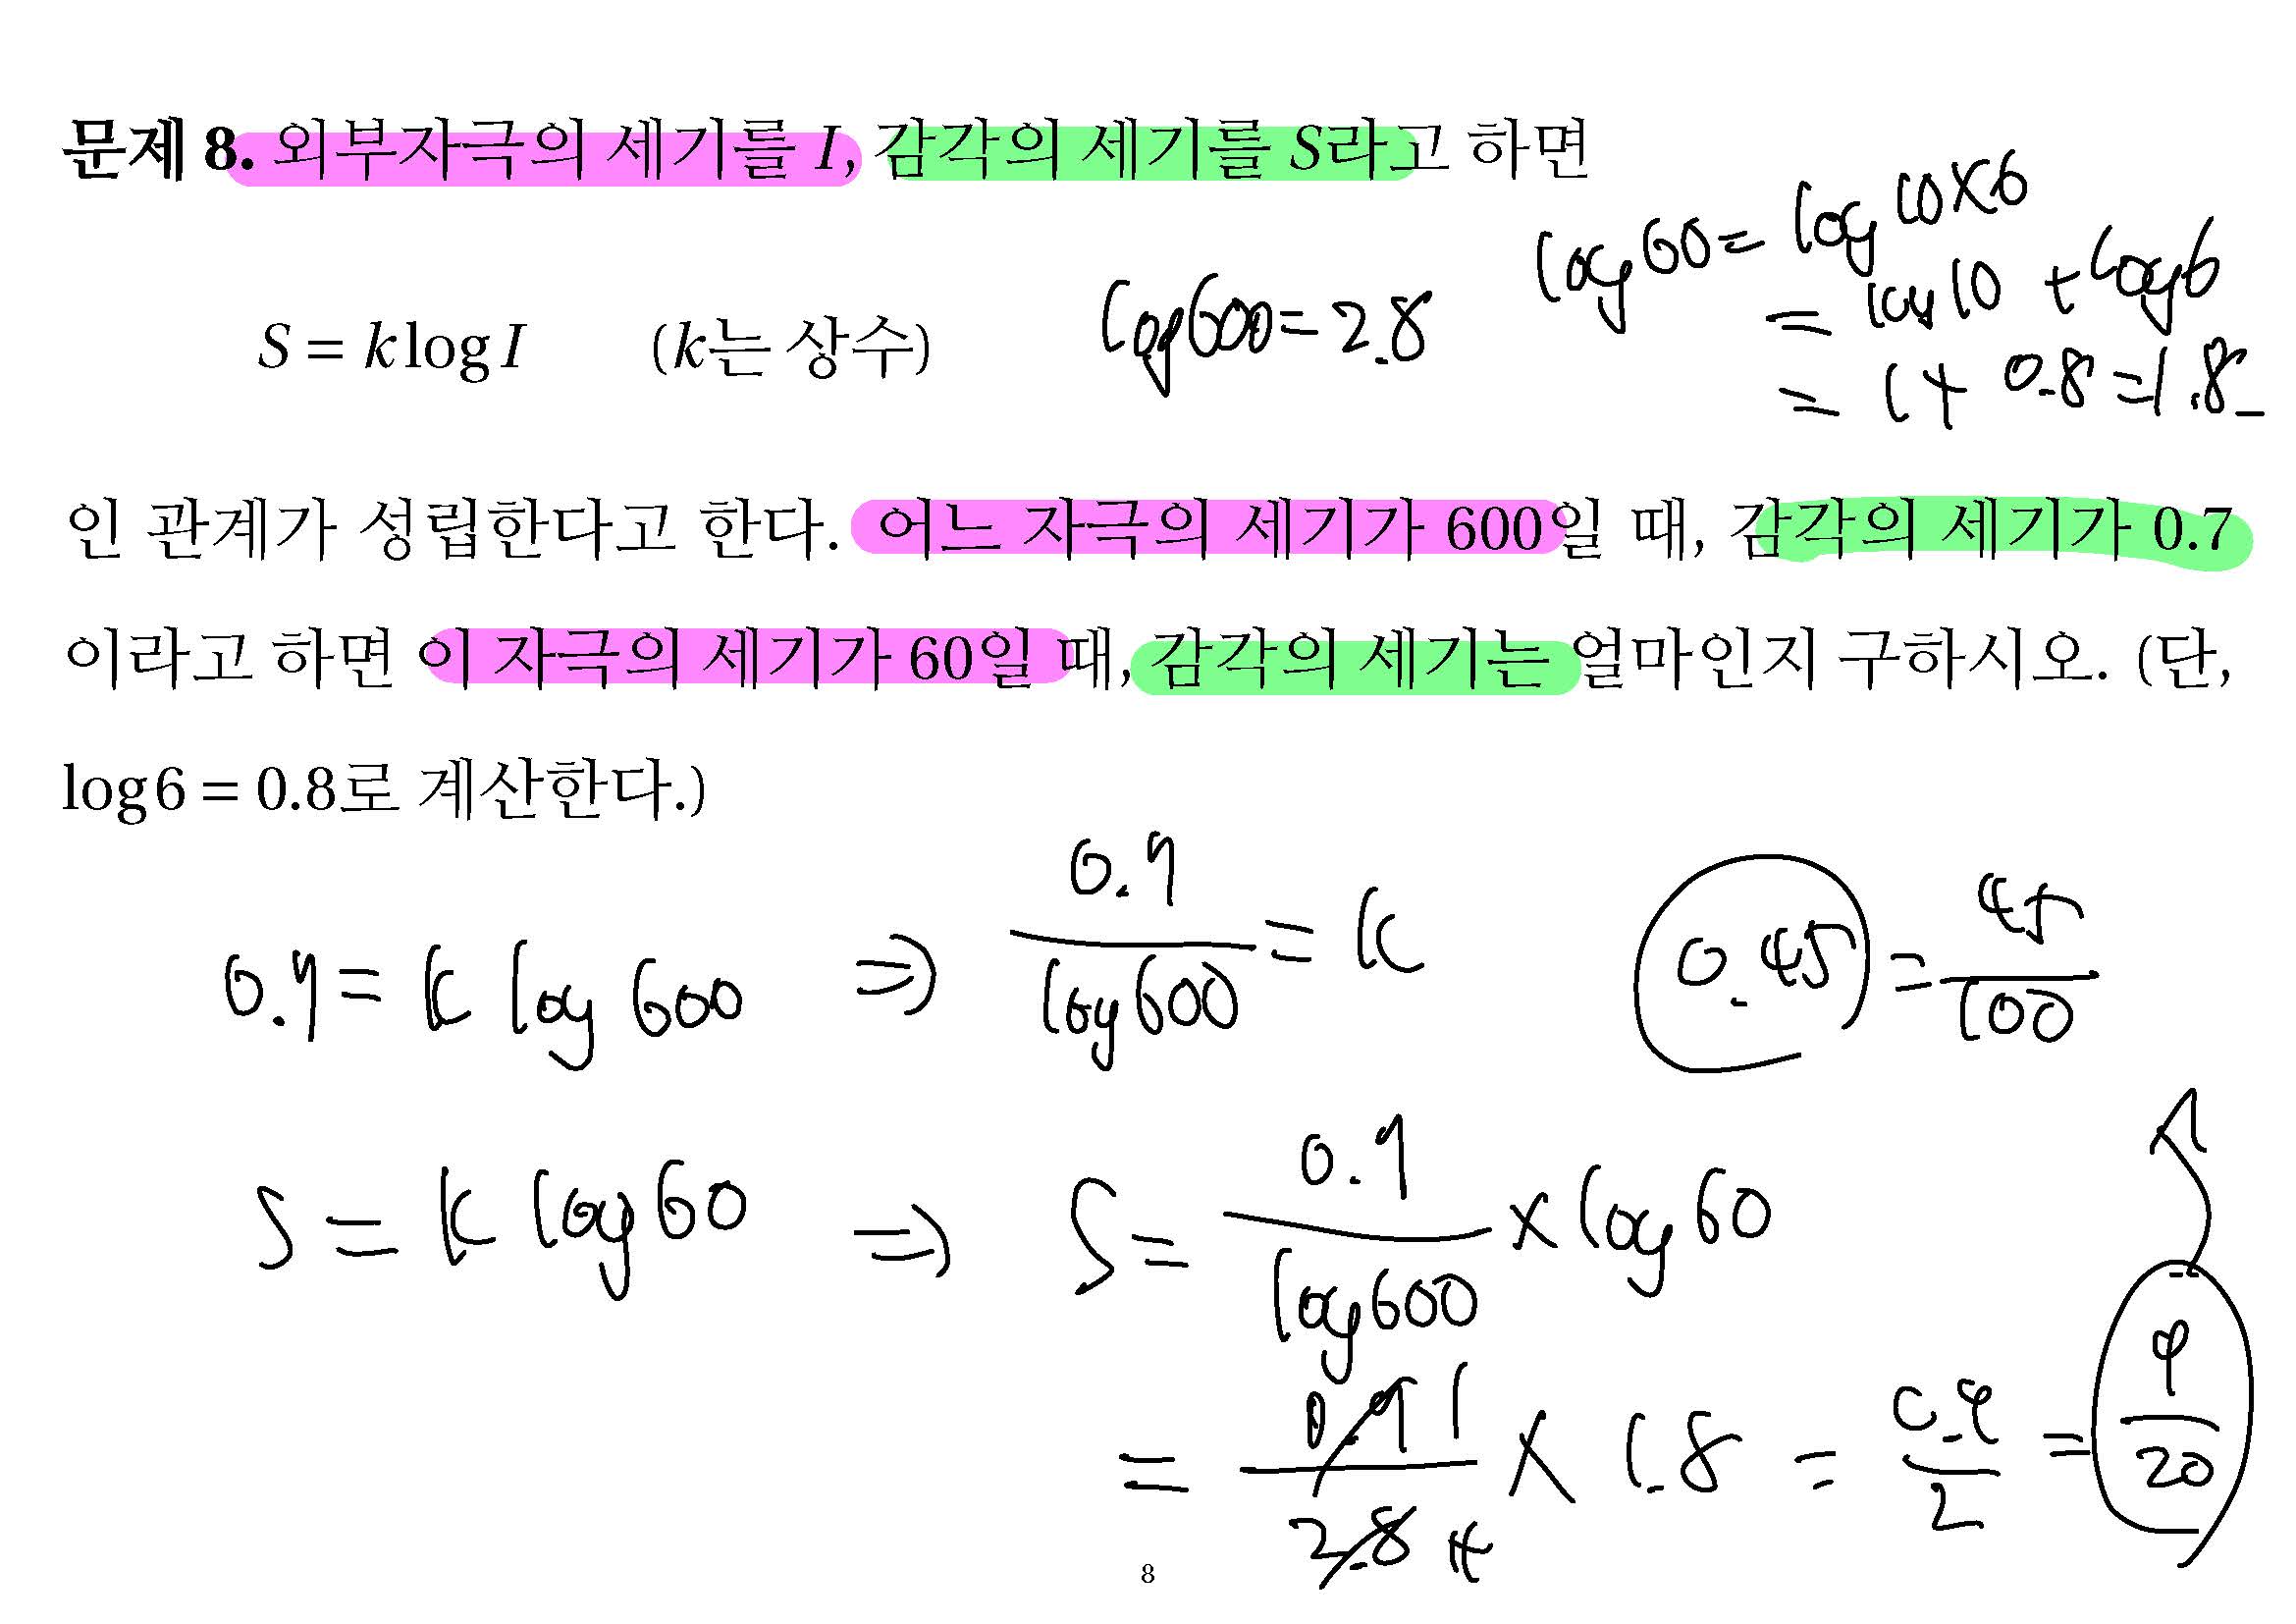 문제 8. 외부자극의 세기를 I, 감각의 세기를 S라고 하면
log60 = log 10×6
S = k log I (k는 상수)
log600 = 2.8
= log 10 + log6
= 1 + 0.8 = 1.8
인 관계가 성립한다고 한다. 어느 자극의 세기가 600일 때, 감각의 세기가 0.7
이라고 하면 이 자극의 세기가 60일 때, 감각의 세기는 얼마인지 구하시오. (단,
log6 = 0.8로 계산한다.)
0.7 = k log 600 ⇒ 0.7/log600 = k
0.45 = 45/100
S = k log60 ⇒ S = 0.7/log600 × log60
= 0.7 1/2.8 4 × 1.8 = 0.9/2 = 9/20
8